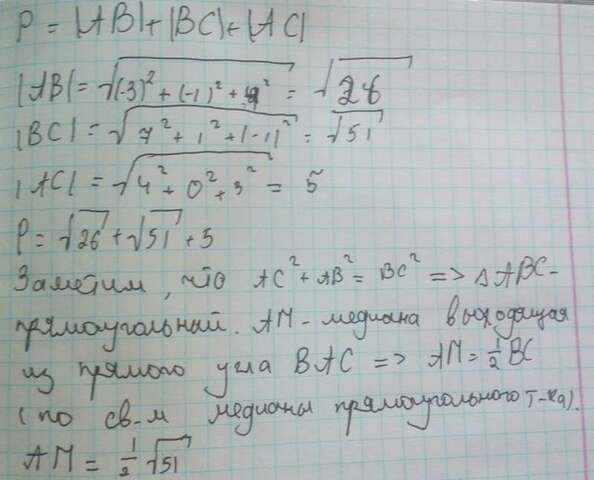 P = |AB| + |BC| + |AC|
|AB| = √((-3)² + (-1)² + 4²) = √26
|BC| = √(7² + 1² + (-1)²) = √51
|AC| = √(4² + 0² + 3²) = 5
P = √26 + √51 + 5
Заметим, что AC² + AB² = BC² => △ABC-
прямоугольный. AM - медиана выходящая
из прямого угла BAC => AM = ½ BC
(по св-м медианы прямоугольного т-ка).
AM = ½ √51